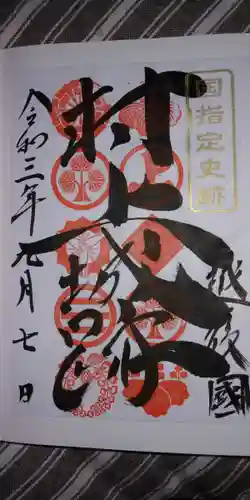 国指定史跡
越後國
村上城
令和三年九月七日